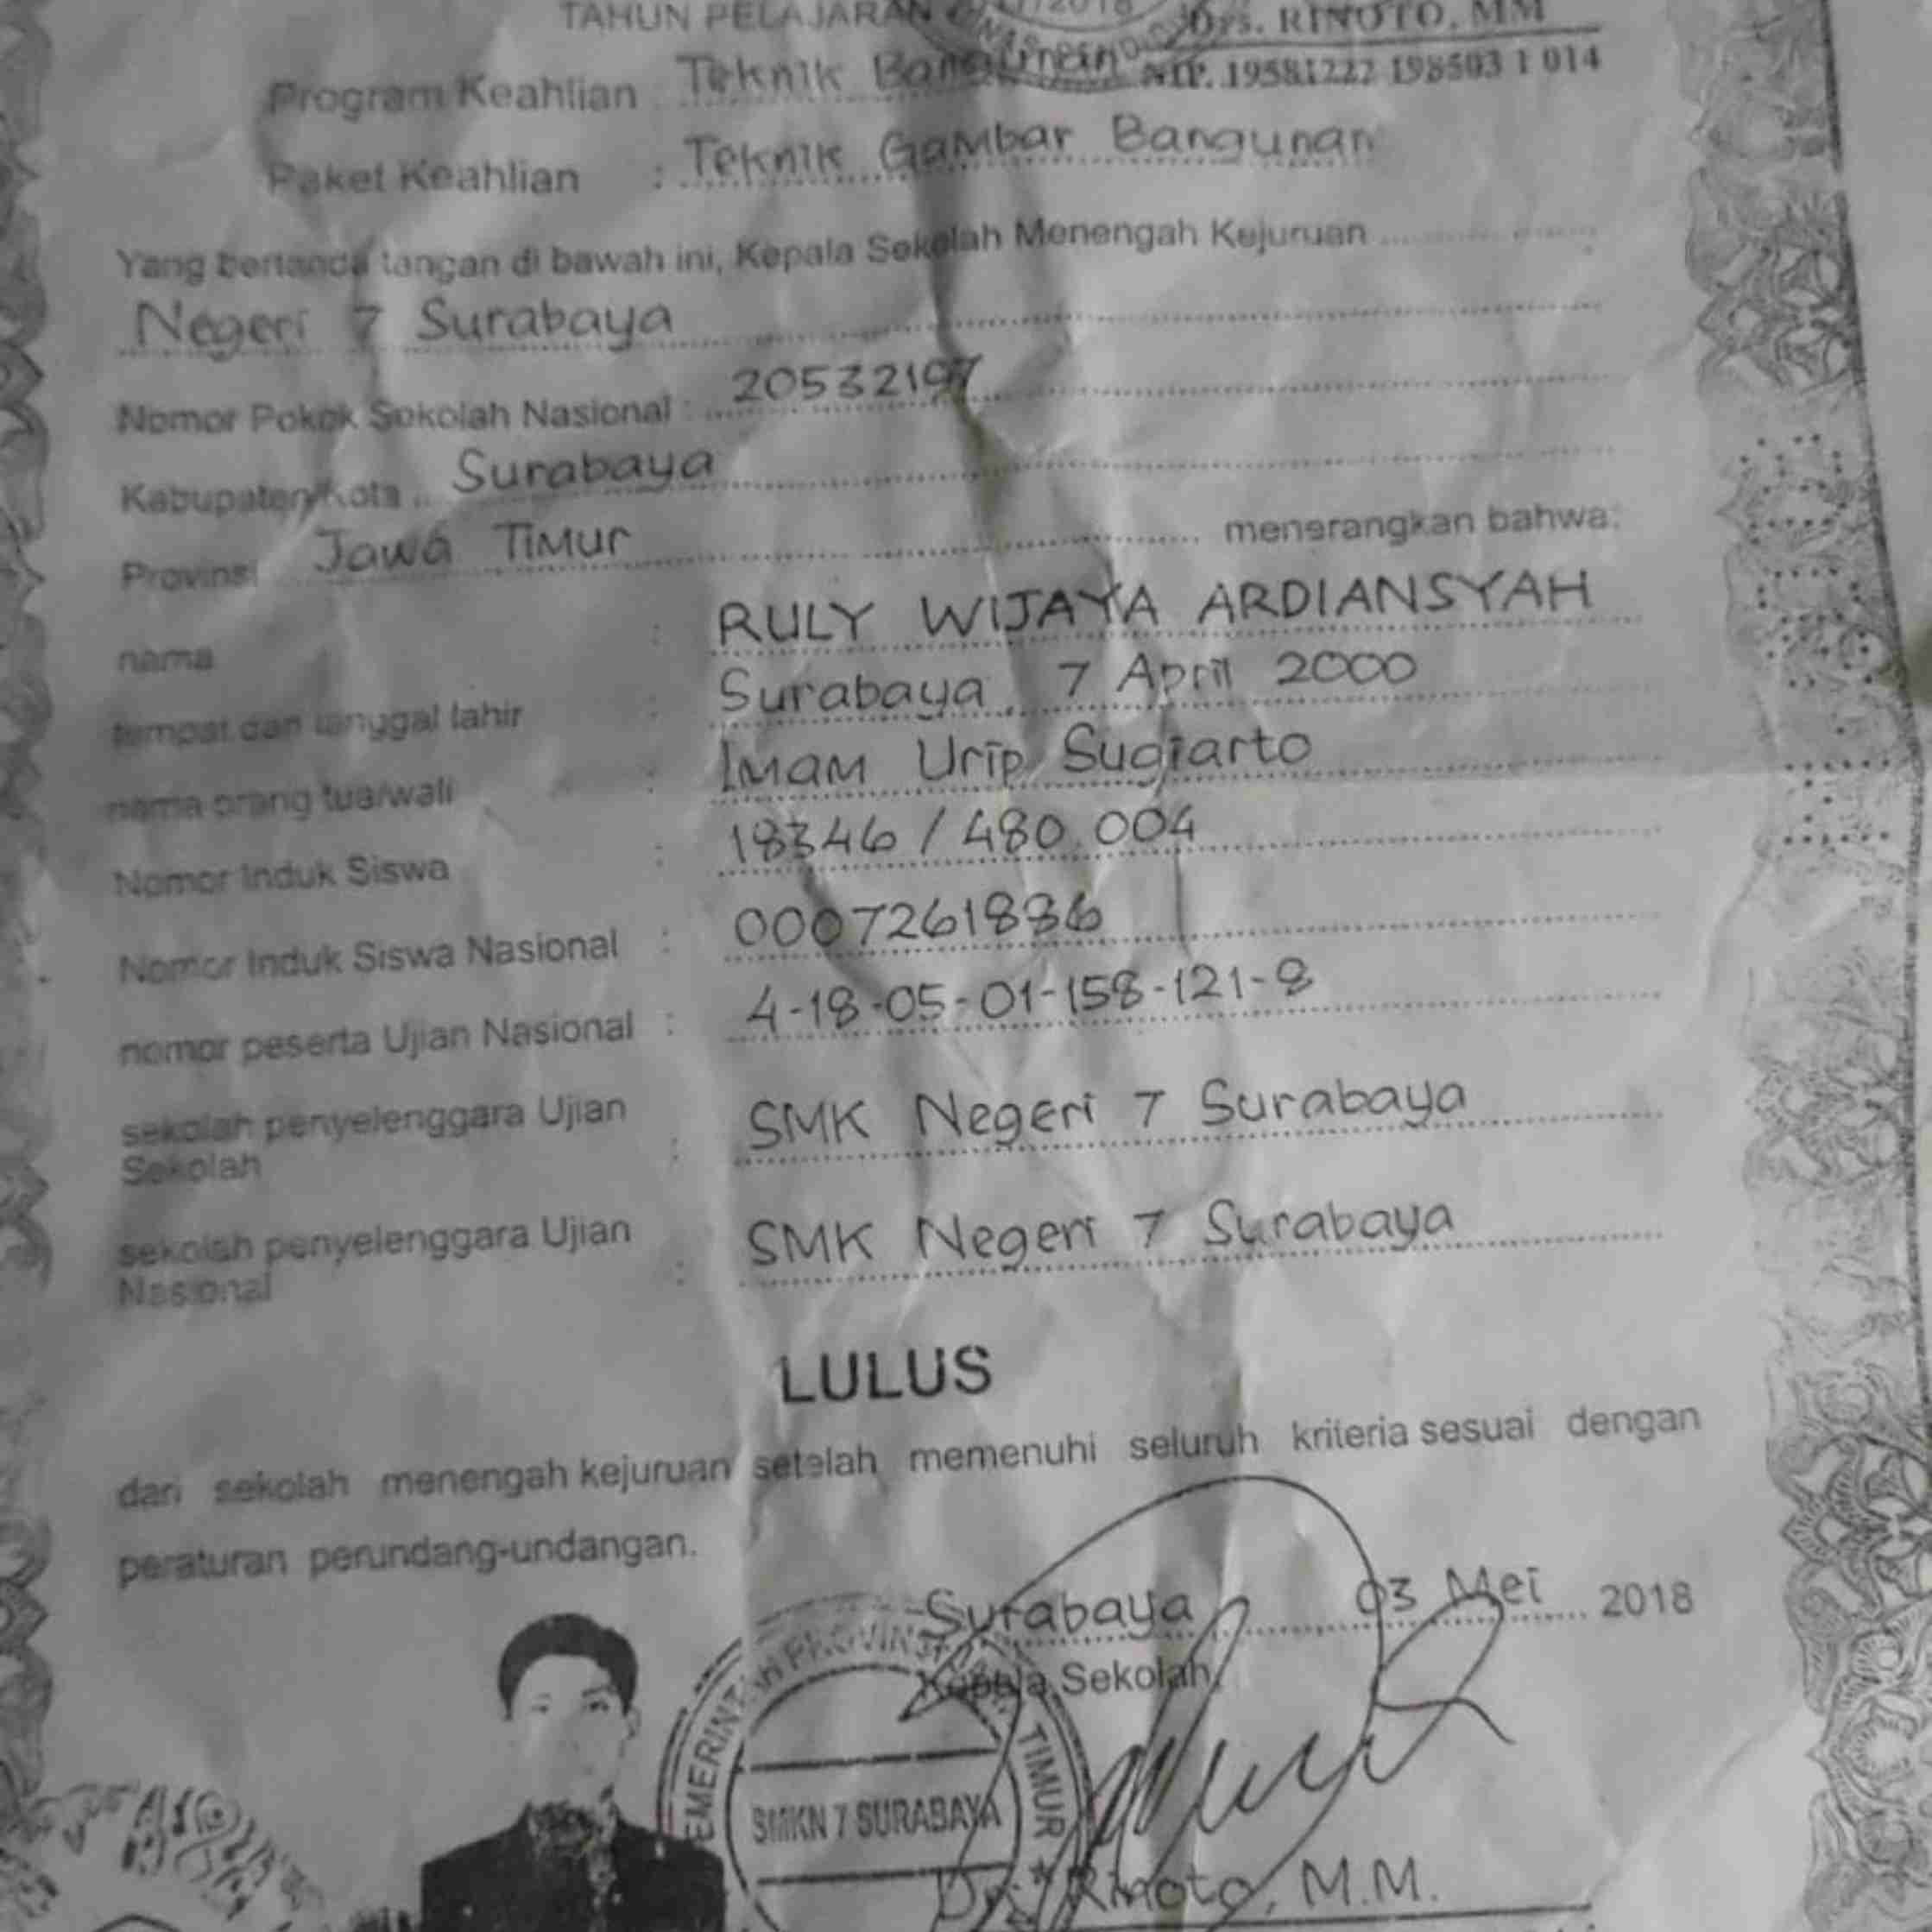 TAHUN PELAJARAN /2018
Drs. RINOTO, MM
NIP. 19581222 198503 1 014
Program Keahlian : Teknik Bangunan
Paket Keahlian : Teknik Gambar Bangunan
Yang bertanda tangan di bawah ini, Kepala Sekolah Menengah Kejuruan
Negeri 7 Surabaya
Nomor Pokok Sekolah Nasional : 20532197
Kabupaten/Kota Surabaya
Provinsi Jawa Timur menerangkan bahwa:
nama : RULY WIJAYA ARDIANSYAH
tempat dan tanggal lahir : Surabaya, 7 April 2000
nama orang tua/wali : Imam Urip Sugiarto
Nomor Induk Siswa : 18346 / 480.004
Nomor Induk Siswa Nasional : 0007261886
nomor peserta Ujian Nasional : 4-18-05-01-158-121-8
sekolah penyelenggara Ujian
Sekolah : SMK Negeri 7 Surabaya
sekolah penyelenggara Ujian
Nasional : SMK Negeri 7 Surabaya
LULUS
dari sekolah menengah kejuruan setelah memenuhi seluruh kriteria sesuai dengan
peraturan perundang-undangan.
Surabaya, 03 Mei 2018
Kepala Sekolah,
PEMERINTAH PROVINSI JAWA TIMUR
SMKN 7 SURABAYA
Drs. Rinoto, M.M.